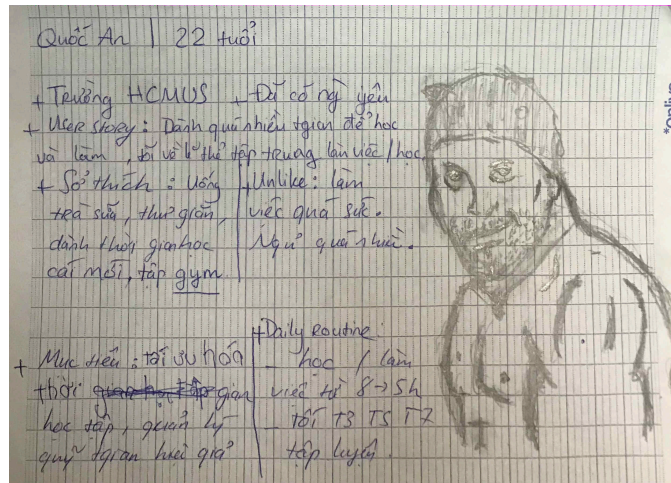 Quốc An | 22 tuổi
+ Trường HCMUS + Đã có ng yêu
+ User story : Dành quá nhiều tgian để học
và làm , tối về k thể tập trung làm việc / học
+ Sở thích : Uống
trà sữa, thư giãn,
dành thời gian học
cái mới, tập gym
+ Unlike : làm
việc quá sức.
Ngủ quá nhiều.
+ Mục tiêu : tối ưu hóa
thời gian
học tập, quản lý
quỹ tgian hiệu quả
+ Daily Routine :
_ học / làm
việc từ 8 → 5h
_ tối T3 T5 T7
tập luyện.